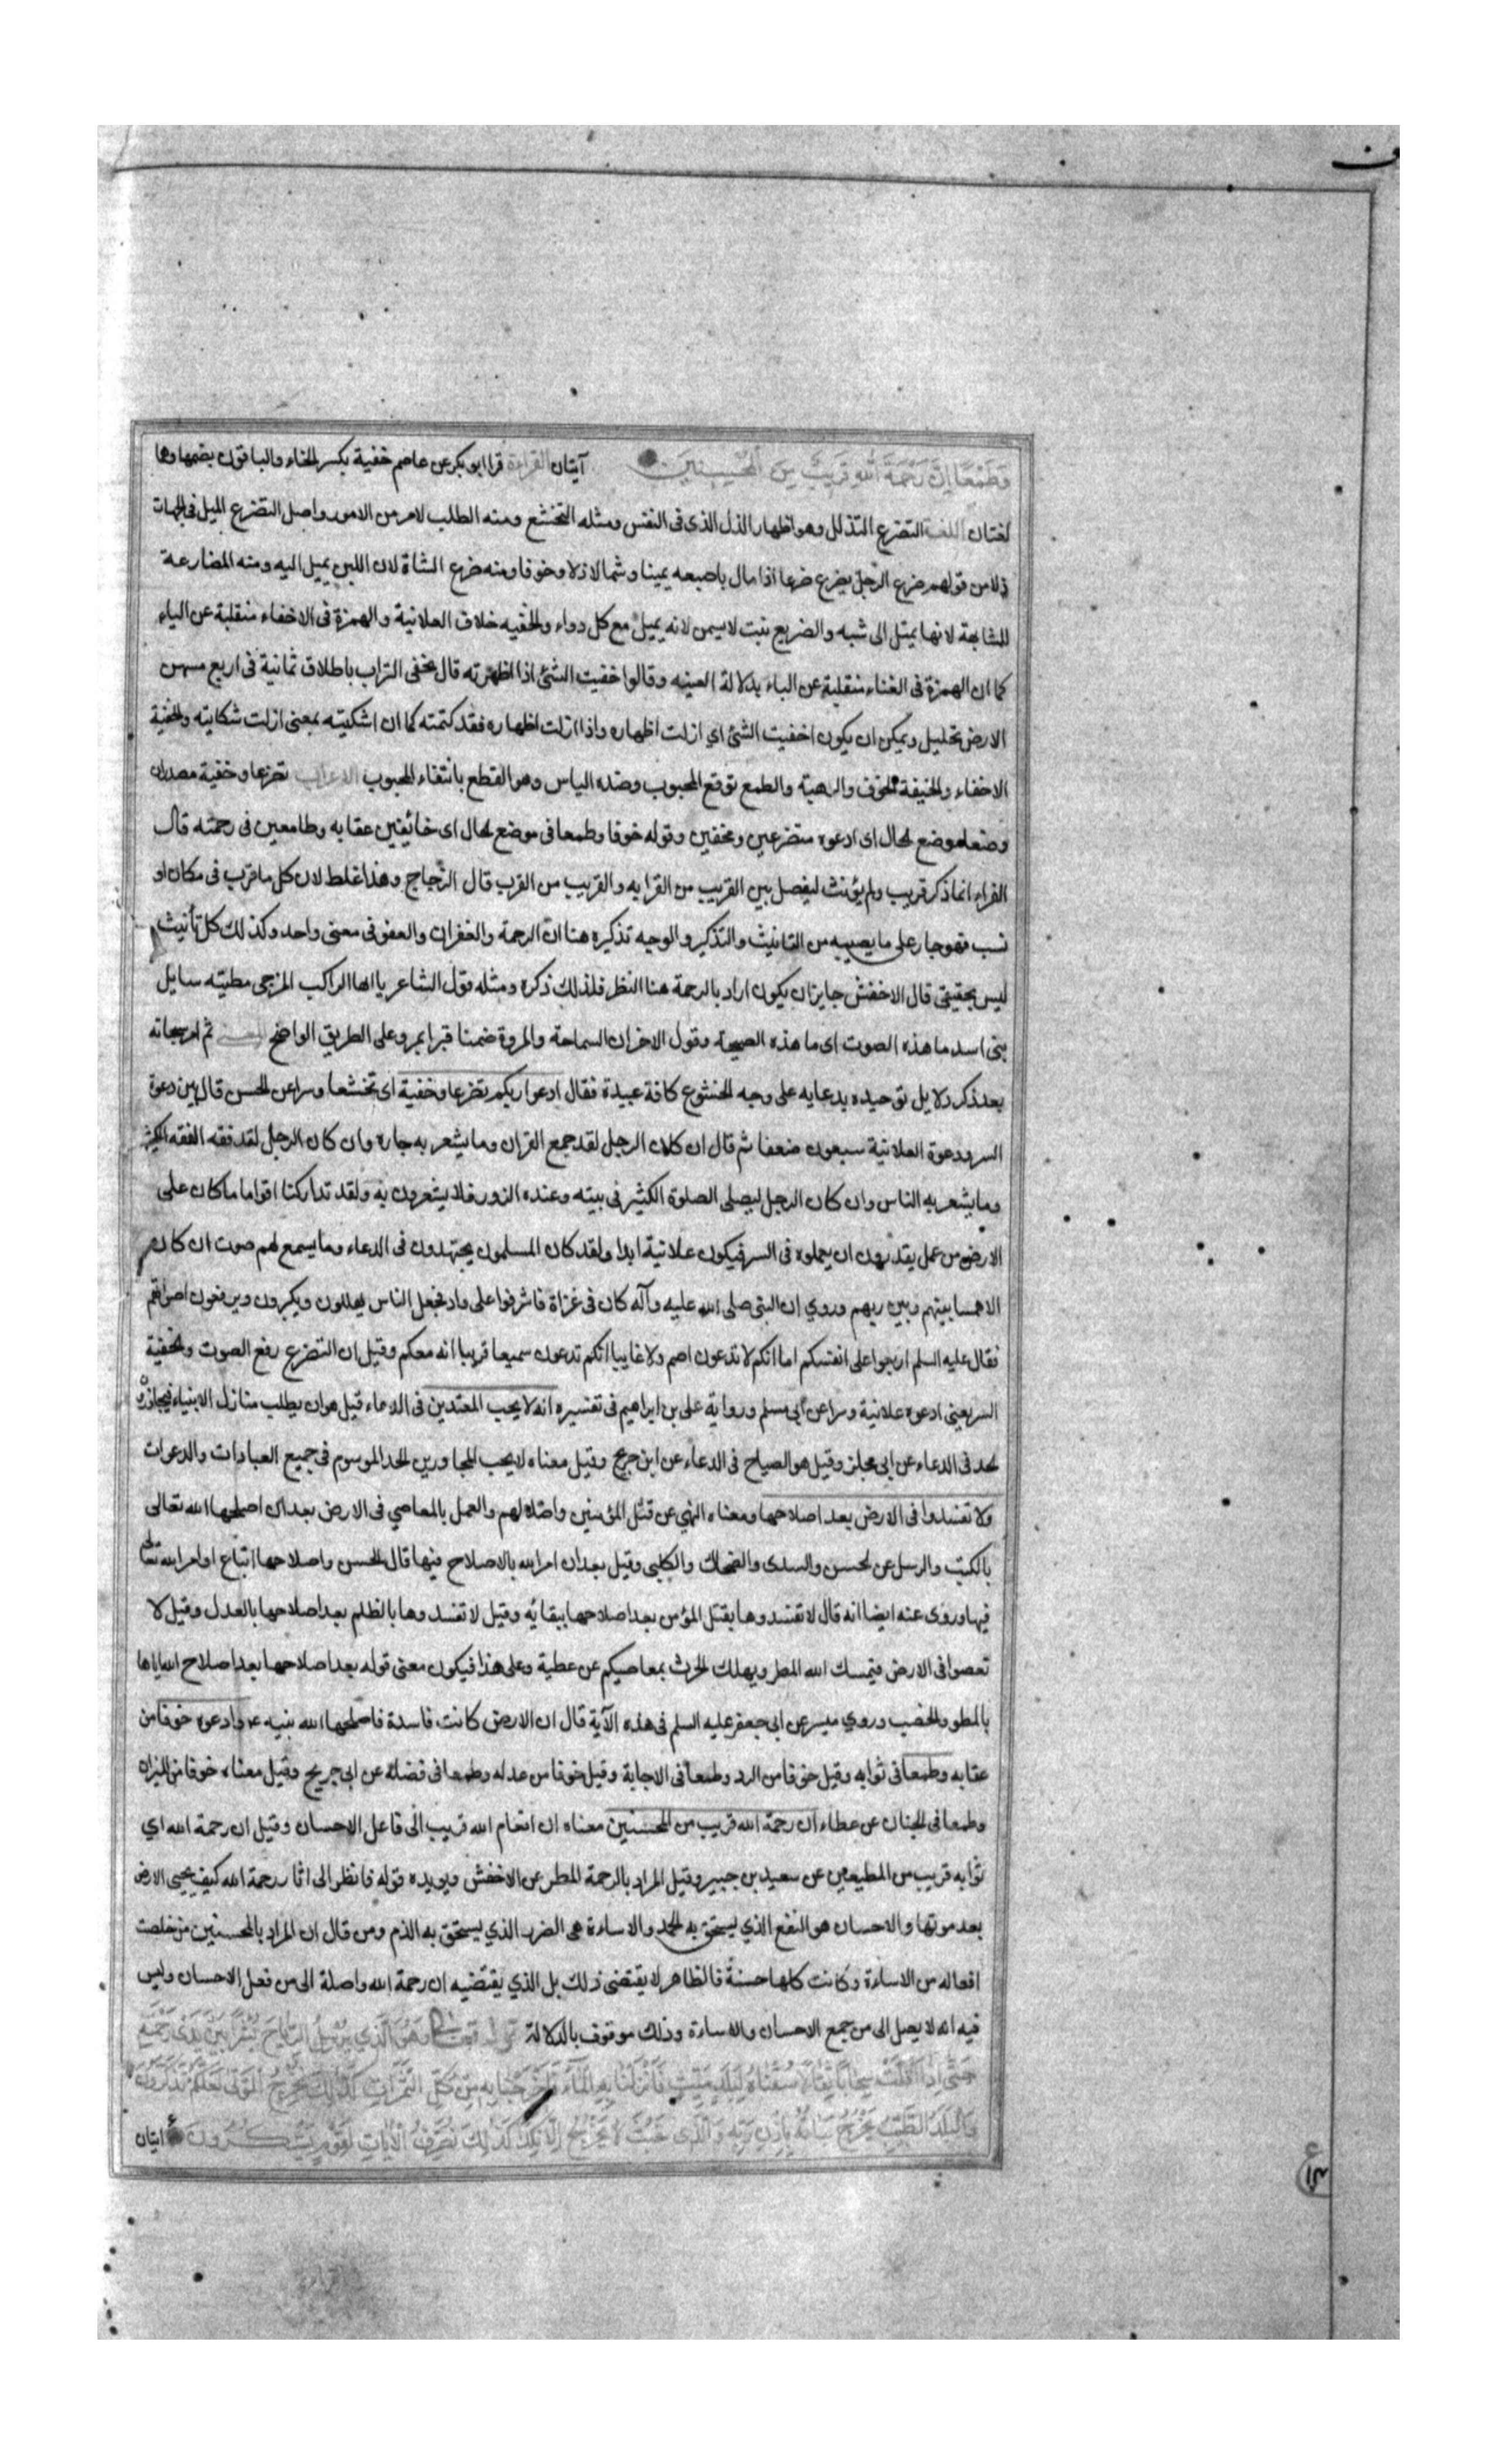 وَطَمَعًا اِنَّ رَحْمَةَ اللهِ قَرِيبٌ مِنَ الْمُحْسِنِينَ آيتان القراءة قرا ابو بكر عن عاصم خفية بكسر الخاء والباقون بضمها وها
لغتان اللغة التضرع التذلل وهو اظهار الذل الذى فى النفس ومثله التخشع ومنه الطلب لامر من الامور واصل التضرع الميل فى الجهات
ذلا من قولهم ضرع الرجل يضرع ضرعا اذا مال باصبعه يمينا وشمالا ذلا وخوفا ومنه ضرع الشاة لان اللبن يميل اليه ومنه المضارعة
للمشابهة لانها يميل الى شبه والضريع نبت لا يسمن لانه يميل مع كل دواء والخفيه خلاف العلانية والهمزة فى الاخفاء منقلبة عن الياء
كما ان الهمزة فى الغناء منقلبة عن الياء بدلالة الغنيه وقالوا خفيت الشئ اذا اظهرته قال يخفى التراب باطلاق ثمانية فى اربع مسهن
الارض تحليل ويمكن ان يكون اخفيت الشئ اي ازلت اظهاره واذا ازلت اظهاره فقد كتمته كما ان اشكيته بمعنى ازلت شكايته والخفية
الاخفاء والخيفة الخوف والرهبة والطمع توقع المحبوب وضده الياس وهو القطع بانتفاء المحبوب الاعراب تضرعا وخفية مصدران
وضعا موضع الحال اى ادعوه متضرعين ومخفين وقوله خوفا وطمعا فى موضع الحال اى خائفين عقابه وطامعين فى رحمته قال
الفراء انما ذكر قريب ولم يؤنث ليفصل بين القريب من القرابه والقريب من القرب قال الزجاج وهذا غلط لان كل ما قرب فى مكان او
نسب فهو جار على ما يصيبه من التانيث والتذكير والوجه تذكيره هنا ان الرحمة والغفران والعفو فى معنى واحد وكذلك كل تأنيث
ليس بحقيقى قال الاخفش جايز ان يكون اراد بالرحمة هنا النظر فلذلك ذكره ومثله قول الشاعر يا ايها الراكب المزجى مطيته سايل
بنى اسد ما هذه الصوت اى ما هذه الصيحة وقول الاخر ان السماحة والمروة ضمنا قبرا بمرو على الطريق الواضح ثم امر سبحانه
بعد ذكر دلايل توحيده بدعايه على وجه الخشوع كافة عبيدة فقال ادعوا ربكم تضرعا وخفية اى تخشعا وسرا عن الحسن قال بين دعوة
السر ودعوة العلانية سبعون ضعفا ثم قال ان كان الرجل لقد جمع القران وما يشعر به جاره وان كان الرجل لقد فقه الفقه الكثير
وما يشعر به الناس وان كان الرجل ليصلى الصلوة الكثير فى بيته وعنده الزور فلا يشعرون به ولقد تداركنا اقواما ما كان على
الارض من عمل يقدرون ان يعملوه فى السر فيكون علانية ابدا ولقد كان المسلمون يجتهدون فى الدعاء وما يسمع لهم صوت ان كان
الا همسا بينهم وبين ربهم وروي ان النبى صلى الله عليه وآله كان فى غزاة فاشرفوا على واد فجعل الناس يهللون ويكبرون ويرفعون اصواتهم
فقال عليه السلم اربعوا على انفسكم اما انكم لا تدعون اصم ولا غايبا انكم تدعون سميعا قريبا انه معكم وقيل ان التضرع رفع الصوت والخفية
السر يعنى ادعوه علانية وسرا عن ابى مسلم ورواية على بن ابراهيم فى تفسيره انه لا يحب المعتدين فى الدعاء قيل هو ان يطلب منازل الانبياء فيجاوز
الحد فى الدعاء عن ابى مجلز وقيل هو الصياح فى الدعاء عن ابن جريج وقيل معناه لا يحب المجاورين الحد الموسوم فى جميع العبادات والدعوات
ولا تفسدوا فى الارض بعد اصلاحها ومعناه النهي عن قتل المؤمنين واضلالهم والعمل بالمعاصي فى الارض بعد ان اصلحها الله تعالى
بالكتب والرسل عن الحسن والسدى والضحاك والكلبى وقيل بعد ان امر الله بالاصلاح فيها قال الحسن واصلاحها اتباع اوامر الله تعالى
فيها وروى عنه ايضا انه قال لا تفسدوها بقتل المؤمن بعد اصلاحها ببقائه وقيل لا تفسدوها بالظلم بعد اصلاحها بالعدل وقيل لا
تعصوا فى الارض فيمسك الله المطر ويهلك الحرث بمعاصيكم عن عطية وعلى هذا فيكون معنى قوله بعد اصلاحها بعد اصلاح الله اياها
بالمطر والخصب وروي ميسر عن ابى جعفر عليه السلم فى هذه الآية قال ان الارض كانت فاسدة فاصلحها الله بنبيه وادعوه خوفا من
عقابه وطمعا فى ثوابه وقيل خوفا من الرد وطمعا فى الاجابة وقيل خوفا من عدله وطمعا فى فضله عن ابى جريج وقيل معناه خوفا من النيران
وطمعا فى الجنان عن عطاء ان رحمة الله قريب من المحسنين معناه ان انعام الله قريب الى فاعل الاحسان وقيل ان رحمة الله اي
ثوابه قريب من المطيعين عن سعيد بن جبير وقيل المراد بالرحمة المطر عن الاخفش ويويده قوله فانظر الى اثار رحمة الله كيف يحيى الارض
بعد موتها والاحسان هو النفع الذي يستحق به الحمد والاساءة هى الضرر الذي يستحق به الذم ومن قال ان المراد بالمحسنين من خلصت
افعاله من الاساءة وكانت كلها حسنة فالظاهر لا يقتضى ذلك بل الذي يقتضيه ان رحمة الله واصلة الى من فعل الاحسان وليس
فيه انه لا يصل الى من جمع الاحسان والاساءة وذلك موقوف بالدلالة قوله تعالى وَهُوَ الَّذِي يُرْسِلُ الرِّيَاحَ بُشْرًا بَيْنَ يَدَيْ رَحْمَتِهِ
حَتَّى اِذَا اَقَلَّتْ سَحَابًا ثِقَالًا سُقْنَاهُ لِبَلَدٍ مَيِّتٍ فَاَنْزَلْنَا بِهِ الْمَاءَ فَاَخْرَجْنَا بِهِ مِنْ كُلِّ الثَّمَرَاتِ كَذَلِكَ نُخْرِجُ الْمَوْتَى لَعَلَّكُمْ تَذَكَّرُونَ
وَالْبَلَدُ الطَّيِّبُ يَخْرُجُ نَبَاتُهُ بِاِذْنِ رَبِّهِ وَالَّذِى خَبُثَ لَا يَخْرُجُ اِلَّا نَكِدًا كَذَلِكَ نُصَرِّفُ الْاٰيَاتِ لِقَوْمٍ يَشْكُرُونَ ايتان